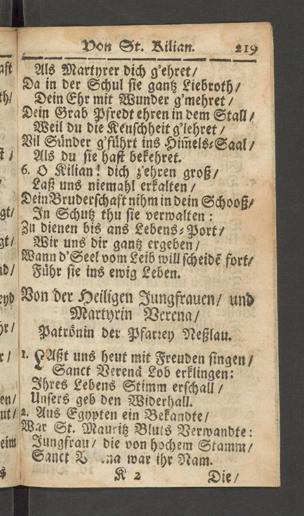 Von St. Kilian. 219
Als Martyrer dich g'ehret/
Da in der Schul sie gantz Liebroth/
Dein Ehr mit Wunder g'mehret/
Dein Grab Pferdt ehren in dem Stall/
Weil du die Keuschheit g'lehret/
Vil Sünder g'führt ins Him̄els-Saal/
Als du sie hast bekehret.
6. O Kilian! dich z'ehren groß/
Laß uns niemahl erkalten/
Dein Bruderschafft nihm in dein Schooß/
In Schutz thu sie verwalten:
Zu dienen bis ans Lebens-Port/
Wir uns dir gantz ergeben/
Wann d'Seel vom Leib will scheidē fort/
Führ sie ins ewig Leben.
Von der Heiligen Jungfrauen/ und
Martyrin Verena/
Patrönin der Pfarrey Neßlau.
1. LAßt uns heut mit Freuden singen/
Sanct Verenä Lob erklingen:
Ihres Lebens Stimm erschall/
Unsers geb den Widerhall.
2. Aus Egypten ein Bekandte/
War St. Mauritz Bluts Verwandte:
Jungfrau/ die von hochem Stamm/
Sanct war ihr Nam.
K 2 Die/